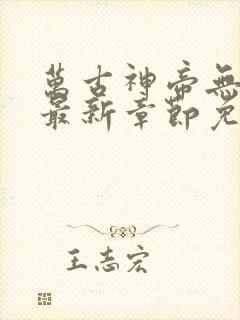 萬古神帝無
最新章節免
王志宏